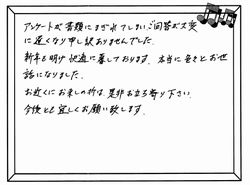 アンケートが書類にまぎれてしまいご回答が大変
に遅くなり申し訳ありませんでした。
新年も明け快適に暮しております。本当に色々とお世
話になりました。
お近くにお来しの折は是非お立ち寄り下さい。
今後とも宜しくお願い致します。